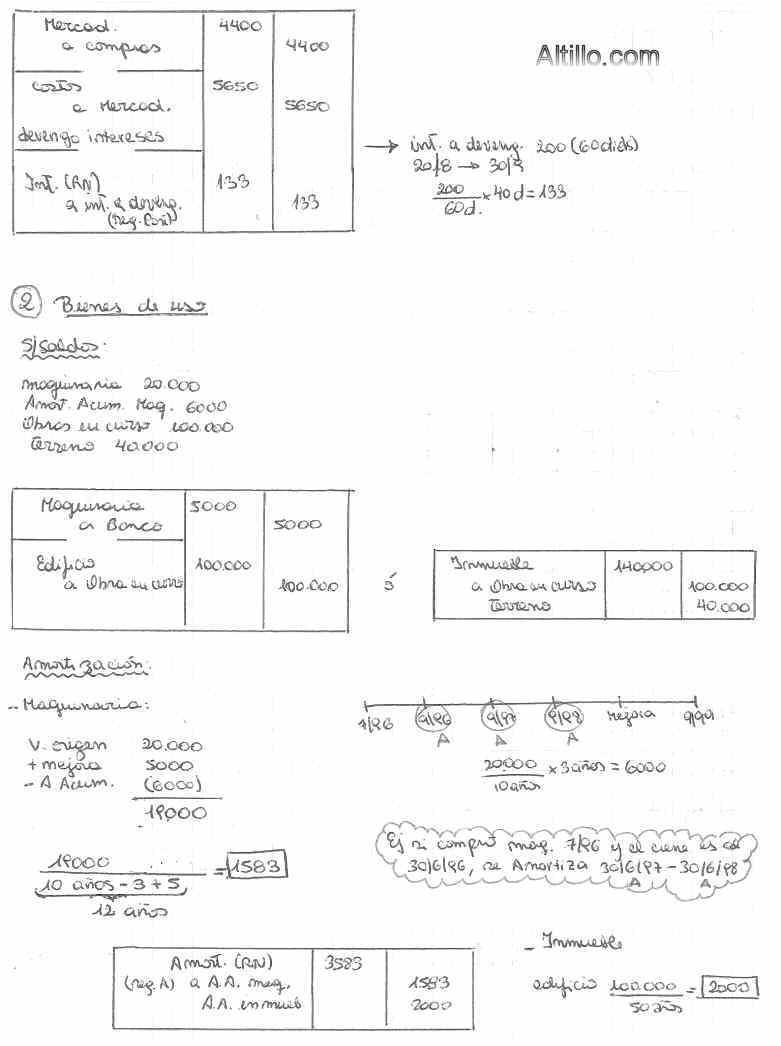 Mercad. 4400
a compras 4400
Altillo.com
costos 5650
a Mercad. 5650
devengo intereses
Int. (RN) 133
a int. a deveng. 133
(reg. Posit)
→ int. a deveng. 200 (60 dias)
20/8 → 30/9
200/60d. × 40 d = 133
2 Bienes de uso
S/saldos:
maquinaria 20.000
Amort. Acum. Maq. 6000
Obras en curso 100.000
Terreno 40.000
Maquinaria 5000
a Banco 5000
Edificio 100.000
a Obra en curso 100.000
ó
Inmueble 140.000
a Obra en curso 100.000
Terreno 40.000
Amortización:
- Maquinaria:
V. origen 20.000
+ mejora 5000
- A Acum. (6000)
19000
19000 / 10 años - 3 + 5 = 1583
12 años
7/96 9/96 9/97 9/98 mejora 9/99
A A A
20.000/10 años × 3 años = 6000
Ej si compró maq. 7/96 y el cierre es el
30/6/96, se Amortiza 30/6/97 - 30/6/98
A A
Amort. (RN) 3583
(reg. A) a A.A. maq. 1583
A.A. inmueb 2000
- Inmueble
edificio 100.000/50 años = 2000